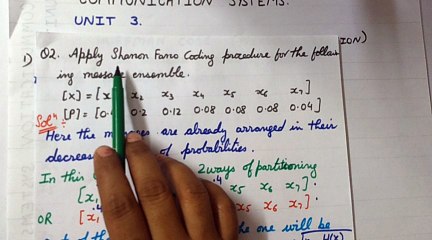 COMMUNICATION SYSTEMS.
UNIT 3.
1) Q2. Apply Shanon Fano Coding procedure for the follow
ing message ensemble.
ION)
[X] = [x x₂ x₃ x₄ x₅ x₆ x₇]
[P] = [0. 0.2 0.12 0.08 0.08 0.08 0.04]
Solⁿ
Here the are already arranged in their
decreas of probabilities.
In this 2 ways of partitioning
[x₁ .4 x₅ x₆ x₇]
OR [x₁ x₅ x₆ x₇]
the one will be
H(X)